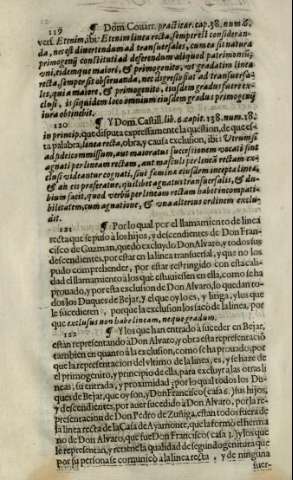 119 ¶ Dom. Couarr. practicar. cap. 38. num. 6.
vers. Etenim, ibi: Etenim linea recta, semper est consideran-
da, nec est diuertendum ad transuersales, cum ea sit natura
primogenij constituti ad defendendum aliquod patrimoniũ,
vni, eidemque maiori, & primogenito, vt gradatim linea
recta, semper sit obseruanda, nec digressus fiat ad transuersa-
les, quia maiori, & primogenito, eiusdem gradus fuere ex-
clusi, is siquidem loco omnium eiusdem gradus primogenij
iura obtinuit.
120 ¶ Y Dom. Castill. lib. 2. capit. 138. num. 18.
in princip. que disputa expressamente la question, de que es-
ta palabra, linea recta, obra, y causa exclusion, ibi: Vtrum si
ad fideicommissum, aut maioratus successionem vocati sint
agnati per lineam rectam, aut masculi per lineã rectam ex-
clusi videantur cognati, siui fœmina eiusdem inceptæ lineæ,
& an eis præferatur, quilibet agnatus transuersalis, & du-
bium facit, quod verbũ per lineam rectam habet incompati-
bilitatem, cum agnatione, & vna alterius ordinem exclu-
dit.
121 ¶ Por lo qual por el llamamiento de linea
recta que se puso à los hijos, y descendientes de Don Fran-
cisco de Guzman, quedò excluydo Don Aluaro, y todos sus
descendientes, por estar en la linea transuersal, y que no los
pudo comprehender, por estar restringido con esta cali-
dad el llamamiento à los que estuuiessen en ella, como se ha
prouado, y por esta exclusion de Don Aluaro, lo quedan to-
dos los Duques de Bejar, y el que oy lo es, y su hija, y los que
le sucedieren, porque la exclusion los sacò de la linea, por
que exclusus non habet lineam, neque gradum.
122 ¶ Y los que han entrado à suceder en Bejar,
estàn representando à Don Aluaro, y obra esta representaciõ
tambien en quanto à la exclusion, como se ha prouado, por
que la representacion del vltimo de la linea, es, y se haze de
el primogenito, y principio de ella, para excluyr à las otras li-
neas, su entrada, y proximidad; por lo qual todos los Du-
ques de Bejar, que oy son, y Don Francisco (casa 2.) sus hijos,
y descendientes, por auer sucedido à Don Aluaro, por la re-
presentacion de Don Pedro de Zuñiga, estàn todos fuera de
la linea recta de la Casa de Ayamonte, que la formò el herma-
no de Don Aluaro, que fue Don Francisco (casa 2.) y los que
le representan, y retiene la qualidad de segundogenitura que
por su persona se comunicò à la linea recta, y de ninguna
suer-